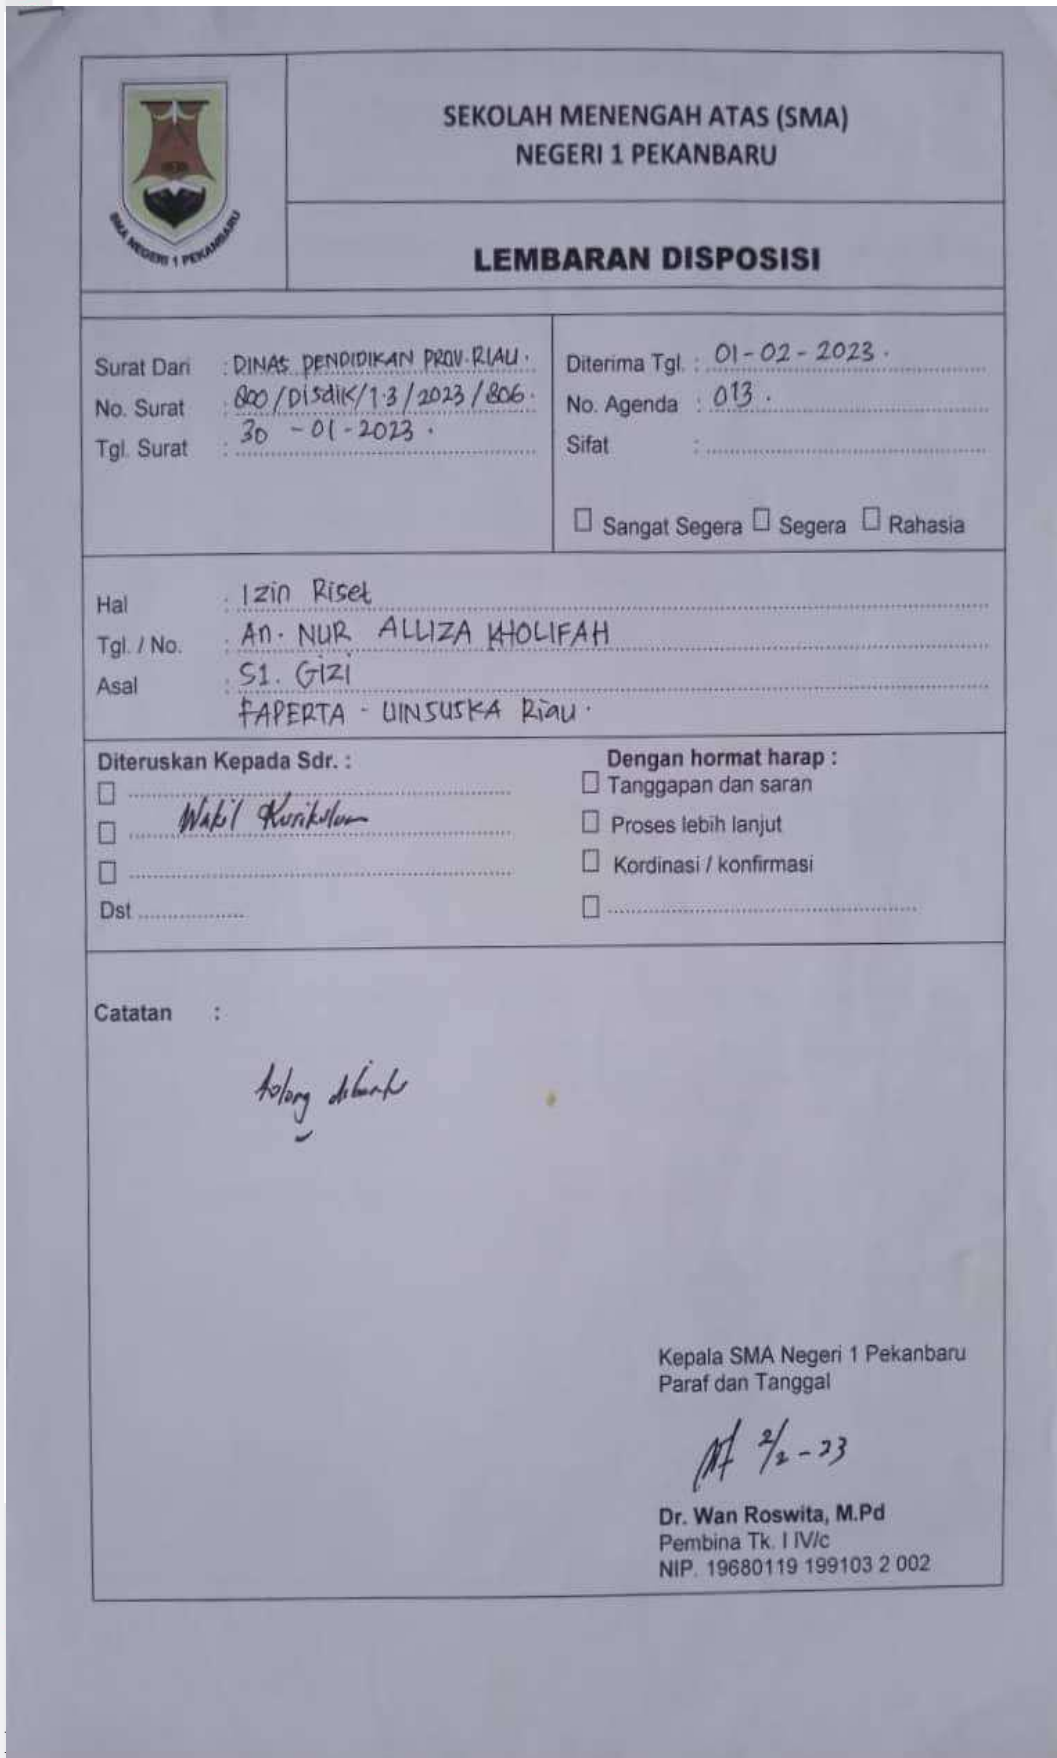 SEKOLAH MENENGAH ATAS (SMA)
NEGERI 1 PEKANBARU
SMA NEGERI 1 PEKANBARU
LEMBARAN DISPOSISI
Surat Dari : DINAS PENDIDIKAN PROV. RIAU.
No. Surat : 800/Disdik/1.3/2023/806.
Tgl. Surat : 30 - 01 - 2023.
Diterima Tgl. : 01 - 02 - 2023.
No. Agenda : 013.
Sifat :
Sangat Segera Segera Rahasia
Hal : Izin Riset
Tgl. / No. : An. NUR ALLIZA KHOLIFAH
Asal : S1. Gizi
FAPERTA - UINSUSKA Riau.
Diteruskan Kepada Sdr. :
Wakil Kurikulum
Dst
Dengan hormat harap :
Tanggapan dan saran
Proses lebih lanjut
Kordinasi / konfirmasi
Catatan :
tolong dibantu
Kepala SMA Negeri 1 Pekanbaru
Paraf dan Tanggal
2/2 - 23
Dr. Wan Roswita, M.Pd
Pembina Tk. I IV/c
NIP. 19680119 199103 2 002